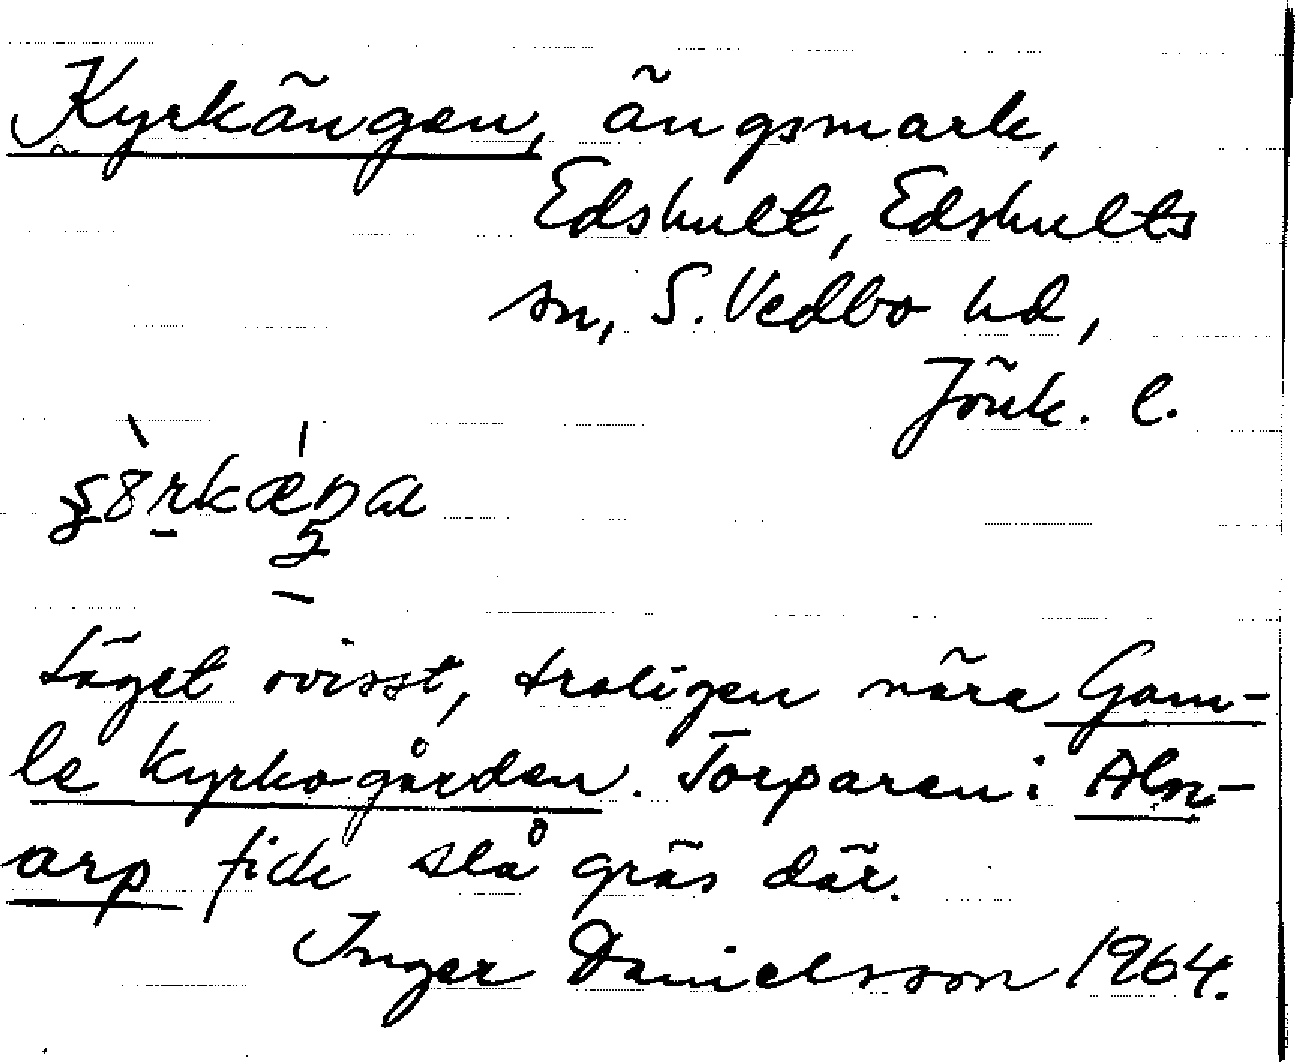 Kyrkängen, ängsmark,
Edshult, Edshults
sn, S. Vedbo hd,
Jönk. l.
Läget ovisst, troligen nära Gam-
le kyrkogården. Torparen i Alm-
arp fick slå gräs där.
Inger Danielsson 1964.